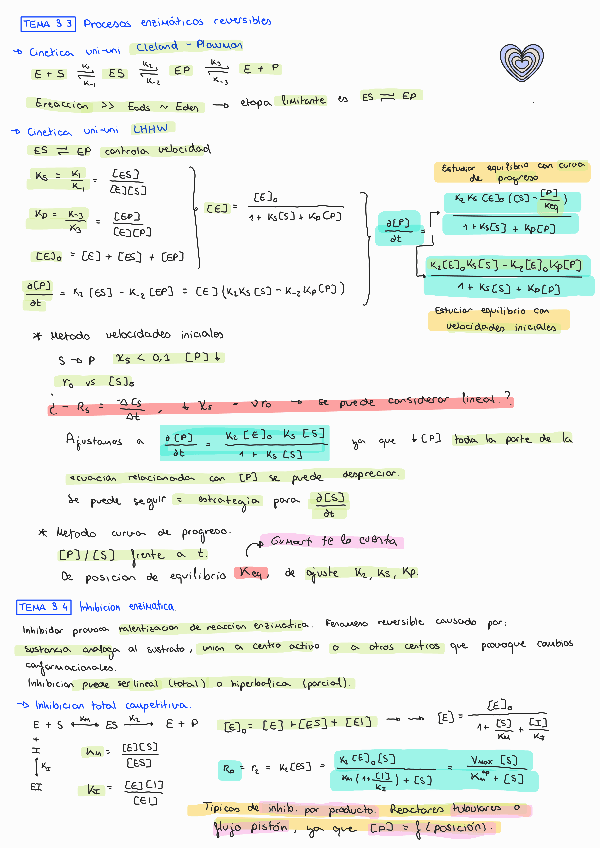 TEMA 3.3 Procesos enzimáticos reversibles
→ Cinetica uni-uni Cleland - Plowman
E + S ⇌ ES ⇌ EP ⇌ E + P
K1 K2 K3
K-1 K-2 K-3
Ereaccion >> Eads ~ Edes → etapa limitante es ES ⇌ EP
→ Cinetica uni-uni LHHW
ES ⇌ EP controla velocidad
Ks = K1/K-1 = [ES]/[E][S]
KP = K-3/K3 = [EP]/[E][P]
[E]0 = [E] + [ES] + [EP]
[E] = [E]0 / 1 + Ks[S] + KP[P]
∂[P]/∂t = K2 [ES] - K-2 [EP] = [E] (K2Ks[S] - K-2 KP[P])
Estudiar equilibrio con curva de progreso
∂[P]/∂t = K2 Ks [E]0 ([S] - [P]/Keq) / 1 + Ks[S] + KP[P]
K2[E]0Ks[S] - K-2[E]0KP[P] / 1 + Ks[S] + KP[P]
Estudiar equilibrio con velocidades iniciales
* Metodo velocidades iniciales
S → P Xs < 0,1 [P]↓
r0 vs [S]0
¿ - Rs = -ΔCs/Δt , ↓ Xs - vr0 → se puede considerar lineal.?
Ajustamos a ∂[P]/∂t = K2 [E]0 Ks [S] / 1 + Ks [S] ya que ↓[P] toda la parte de la
ecuación relacionada con [P] se puede despreciar.
Se puede seguir = estrategia para ∂[S]/∂t
* Metodo curva de progreso.
→ Gumart te lo cuenta
[P]/[S] frente a t.
De posicion de equilibrio Keq, de ajuste K2, Ks, KP.
TEMA 3.4 Inhibicion enzimatica.
Inhibidor provoca ralentizacion de reaccion enzimática. Fenomeno reversible causado por:
sustancia análoga al sustrato, unión a centro activo o a otros centros que provoque cambios
conformacionales.
Inhibicion puede ser lineal (total) o hiperbolica (parcial).
→ Inhibicion total competitiva.
E + S ⟷ ES → E + P
KM K2
+
I
↕ KI
EI
[E]0 = [E] + [ES] + [EI] → → [E] = [E]0 / 1 + [S]/KM + [I]/KI
KM = [E][S]/[ES]
KI = [E][I]/[EI]
R0 = r2 = K2[ES] = K2[E]0[S] / KM(1+[I]/KI) + [S] = VMAX [S] / KM^ap + [S]
Tipicas de inhib. por producto. Reactores tubulares o
flujo pistón, ya que [P] = f(posición).